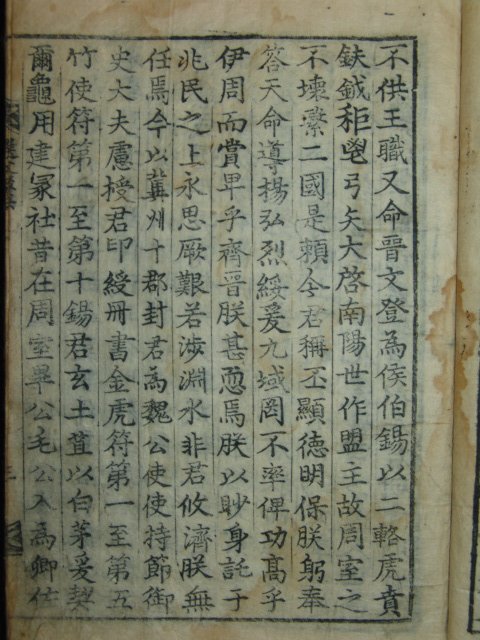 不供王職又命晉文登為侯伯錫以二輅虎賁
鈇鉞秬鬯弓矢大啓南陽世作盟主故周室之
不壞繄二國是賴今君稱丕顯德明保朕躬奉
答天命導揚弘烈綏爰九域罔不率俾功高乎
伊周而賞卑乎齊晉朕甚恧焉朕以眇身託于
兆民之上永思厥艱若涉淵水非君攸濟朕無
任焉今以冀州十郡封君為魏公使使持節御
史大夫慮授君印綬冊書金虎符第一至第五
竹使符第一至第十錫君玄土苴以白茅爰契
爾龜用建冢社昔在周室畢公毛公入為卿仕